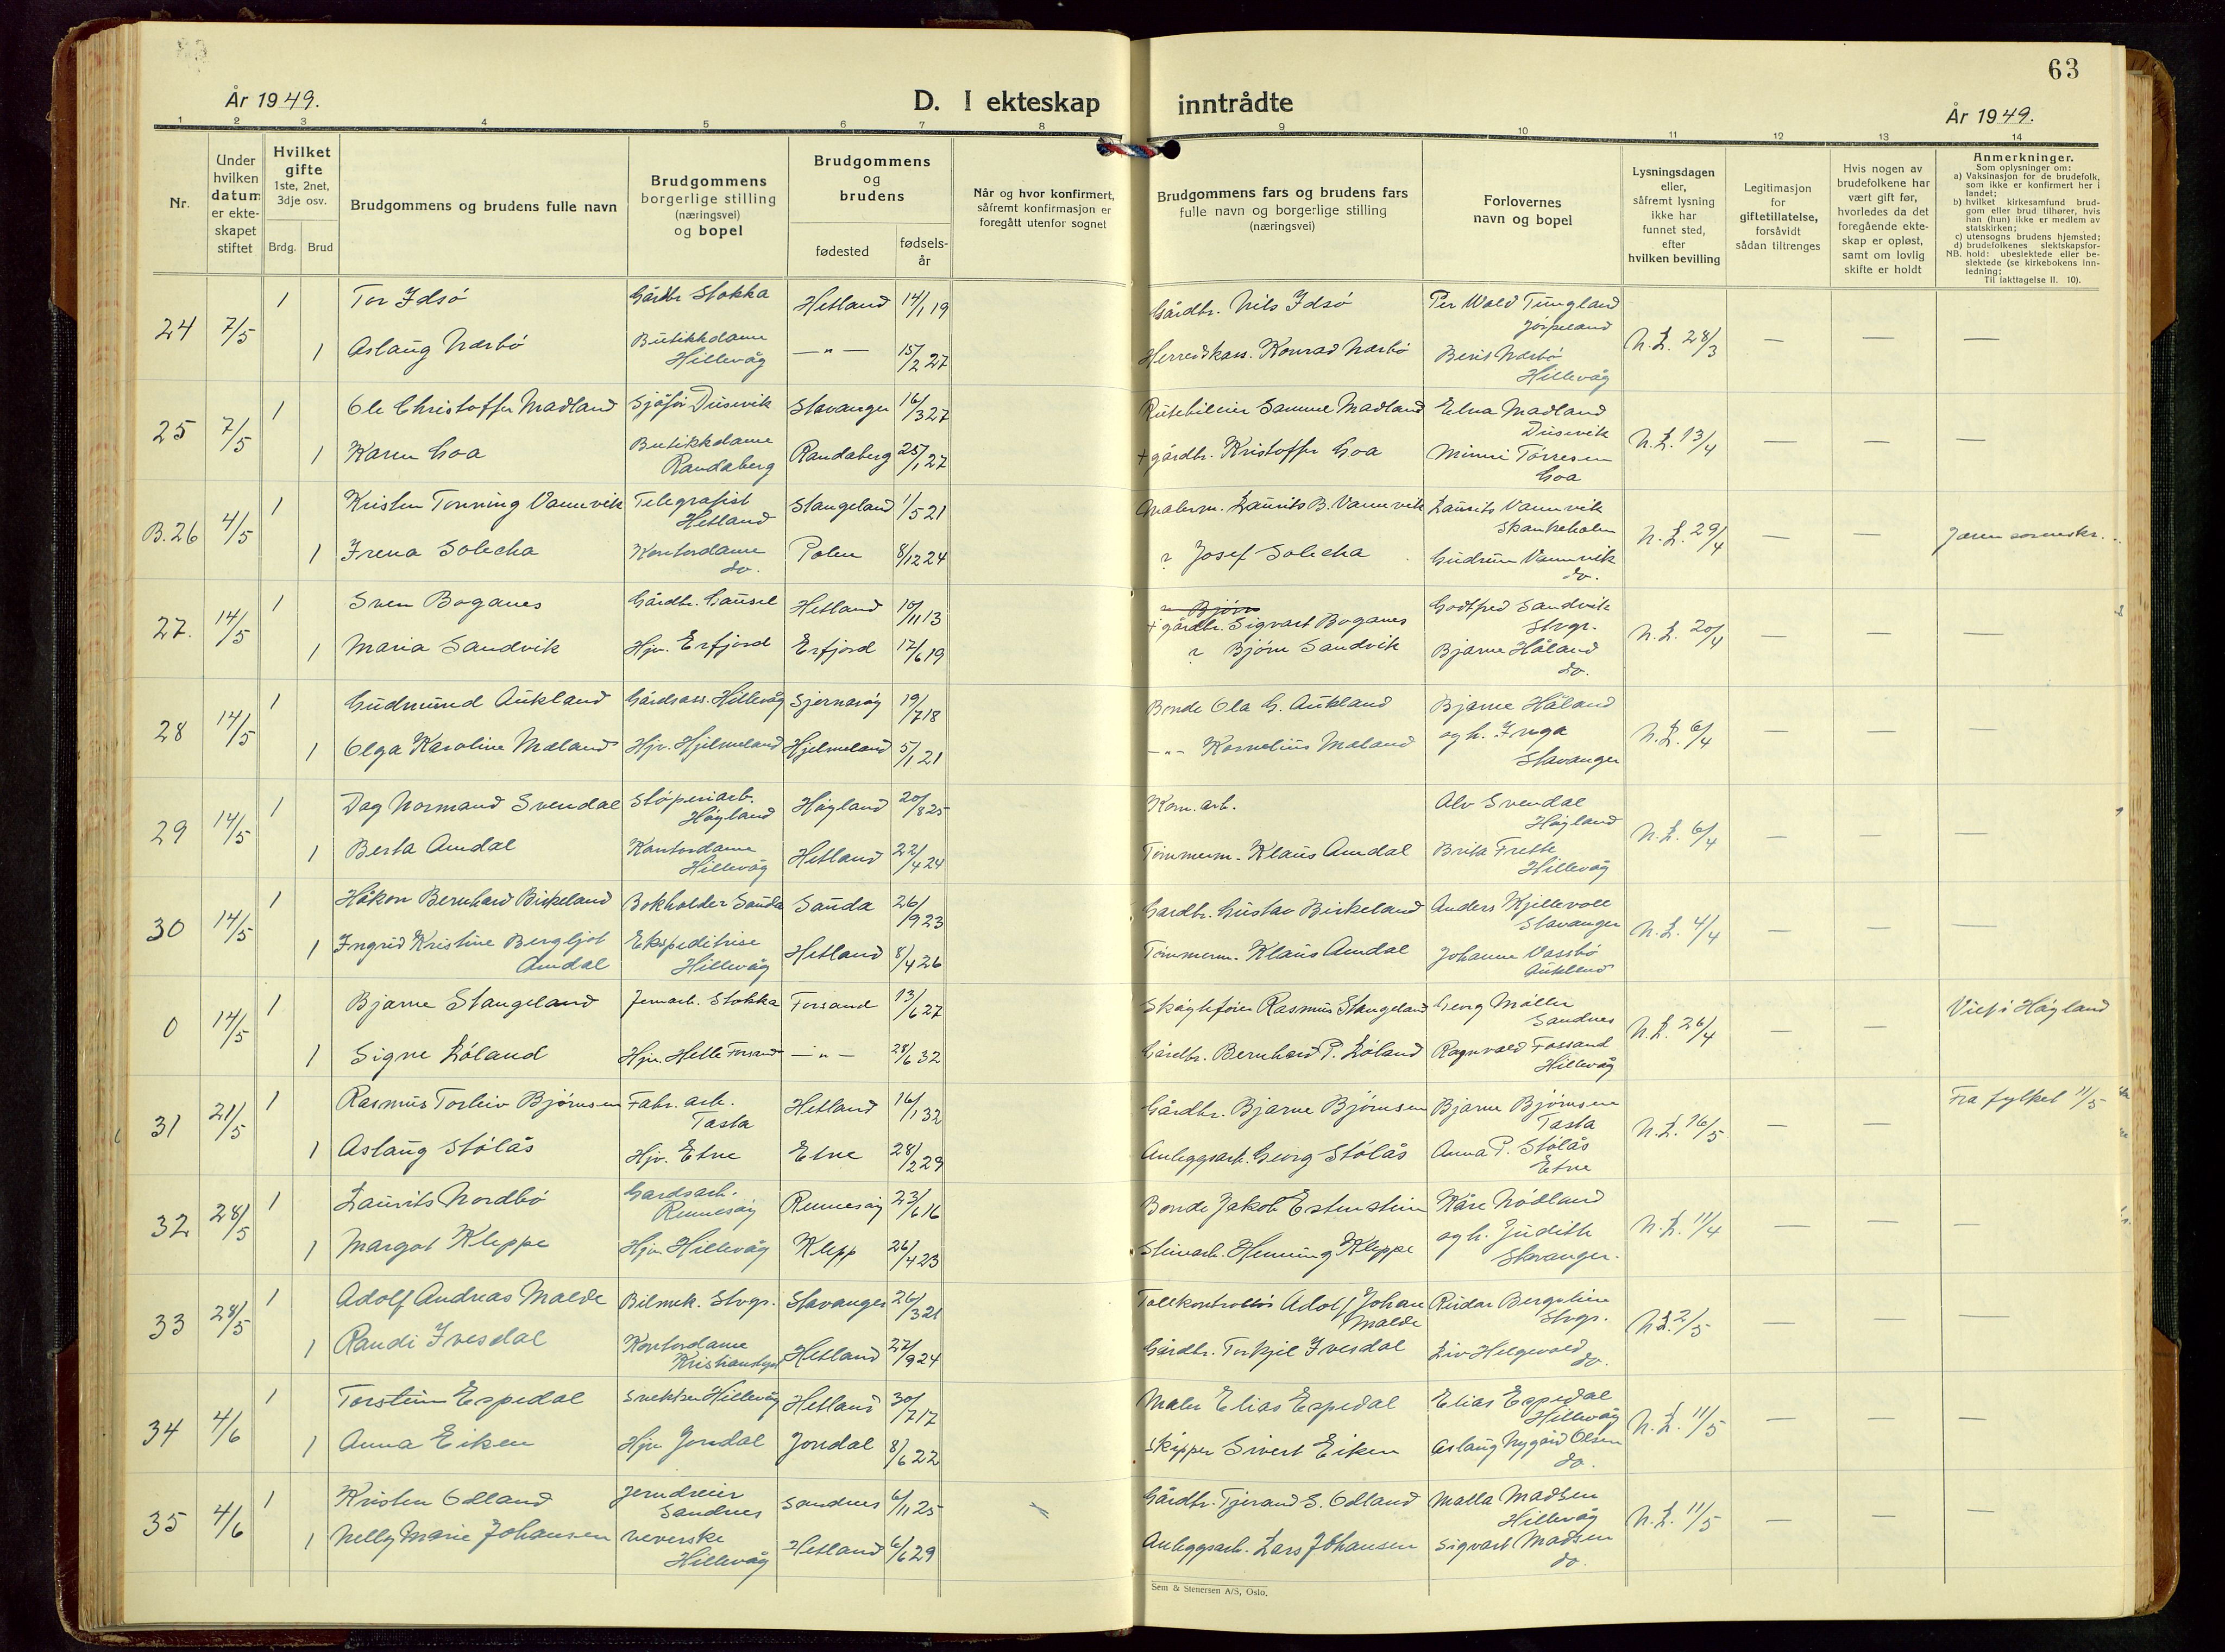 63
År 1949.
D. I ekteskap inntrådte
År 1949.
1 2 3 4 5 6 7 8 9 10 11 12 13 14
Nr.
Under hvilken datum er ekteskapet stiftet
Hvilket gifte 1ste, 2net, 3dje osv.
Brdg. Brud
Brudgommens og brudens fulle navn
Brudgommens borgerlige stilling (næringsvei) og bopel
Brudgommens og brudens
fødested
fødselsår
Når og hvor konfirmert, såfremt konfirmasjon er foregått utenfor sognet
Brudgommens fars og brudens fars fulle navn og borgerlige stilling (næringsvei)
Forlovernes navn og bopel
Lysningsdagen eller, såfremt lysning ikke har funnet sted, efter hvilken bevilling
Legitimasjon for giftetillatelse, forsåvidt sådan tiltrenges
Hvis nogen av brudefolkene har vært gift før, hvorledes da det foregående ekteskap er opløst, samt om lovlig skifte er holdt
Anmerkninger.
Som oplysninger om:
a) Vaksinasjon for de brudefolk, som ikke er konfirmert her i landet;
b) hvilket kirkesamfund brudgom eller brud tilhører, hvis han (hun) ikke er medlem av statskirken;
c) utensogns brudens hjemsted;
d) brudefolkenes slektskapsforhold: ubeslektede eller beslektede (se kirkebokens innledning;
NB. Til iakttagelse ll. 10).
24 7/5 1 Tor Idsö Gårdbr Stokka Hetland 14/1 19 Gårdbr. Nils Idsö Per Wold Tungland Jörpeland N.L. 28/3 — — —
1 Aslaug Nærbö Butikkdame Hillevåg —"— 15/2 27 Herredskass. Konrad Nærbö Berit Nærbö Hillevåg
25 7/5 1 Ole Christoffer Madland Sjåför Dusavik Stavanger 16/3 27 Rutebileier Samuel Madland Elna Madland Dusavik N.L. 13/4 — — —
1 Karen Goa Butikkdame Randaberg Randaberg 25/1 27 + gårdbr. Kristoffer Goa Minni Torresen Goa
B.26 4/5 1 Kristen Tonning Vannvik Telegrafist Hetland Stangeland 1/5 21 Malerm. Laurits B. Vannvik Laurits Vannvik Skankeholen N.L. 29/4 — —
1 Irena Solecka Kontordame do. Polen 8/12 24 ? Josef Solecka Gudrun Vannvik do.
27. 14/5 1 Sven Boganes Gårdbr. Gausel Hetland 10/11 13 + gårdbr. Sigvart Boganes Godtfred Sandvik Stvgr. N.L. 20/4 — — —
1 Maria Sandvik Hjv. Erfjord Erfjord 17/6 19 ? Bjørn Sandvik Bjarne Håland do.
28 14/5 1 Gudmund Aukland Gårdsarb. Hillevåg Sjernaröy 19/7 18 Bonde Ola G. Aukland Bjarne Håland N.L. 6/4 — — —
1 Olga Karoline Mæland Hjv. Hjelmeland Hjelmeland 5/1 21 —"— Kornelius Mæland og h. Inga Stavanger
29 14/5 1 Dag Normand Svendal Stöperiarb. Höyland Höyland 20/8 25 Kom. arb. Alv Svendal Höyland N.L. 6/4 — — —
1 Berta Amdal Kontordame Hillevåg Hetland 22/4 24 Tömmerm. Klaus Amdal Brita Frette Hillevåg
30 14/5 1 Håkon Bernhard Birkeland Bokholder Sauda Sauda 26/9 23 Gardbr. Gustav Birkeland Anders Kjillevoll Stavanger N.L. 4/4 — — —
1 Ingrid Kristine Bergljot Amdal Ekspeditrise Hillevåg Hetland 8/4 26 Tömmerm. Klaus Amdal Johanne Vassbö Aukland
0 14/5 1 Bjarne Stangeland Jernarb. Stokka Forsand 13/6 27 Rasmus Stangeland Georg Möller Sandnes N.L. 26/4 — — Viet i Höyland
1 Signe Löland Hjv. Helle Forsand —"— 28/6 32 Gårdbr. Bernhard P. Löland Ragnvald Fossand Hillevåg
31 21/5 1 Rasmus Torleiv Björnsen Fabr. arb. Tasta Hetland 16/1 32 Gårdbr. Bjarne Björnsen Bjarne Björnsen Tasta N.L. 16/5 — — Fra fylket 11/5
1 Aslaug Stölås Hjv. Etne Etne 28/2 29 Anleggsarb. Georg Stölås Anna P. Stölås Etne
32 28/5 1 Laurits Nordbö Gardsarb. Rennesöy Rennesöy 23/6 16 Bonde Jakob Estenstein Kåre Nödland N.L. 11/4 — — —
1 Margot Kleppe Hjv Hillevåg Klepp 26/4 23 Steinarb. Henning Kleppe og h. Judith Stavanger.
33 28/5 1 Adolf Andreas Malde Bilmek. Stvgr. Stavanger 26/3 21 Tollkontrollör Adolf Johan Malde Reidar Bergelien Stvgr. N.L. 2/5 — — —
1 Randi Ivesdal Kontordame Hetland 22/9 24 Gårdbr. Torkjel Ivesdal Liv Helgevold do.
34 4/6 1 Torstein Espedal Snekker Hillevåg Hetland 30/7 17 Maler Elias Espedal Elias Espedal Hillevåg N.L. 11/5 — — —
1 Anna Eiken Hjv Jondal Jondal 8/6 22 Skipper Sivert Eiken Aslaug Nygård Olsen do.
35 4/6 1 Kristen Odland Jerndreier Sandnes Sandnes 6/11 25 Gårdbr. Tjerand S. Odland Malla Madsen Hillevåg N.L. 11/5 — — —
1 Nelly Marie Johansen Veverske Hillevåg Hetland 6/6 29 Anleggsarb. Lars Johansen Sigvart Madsen do.
Sem & Stenersen A/S, Oslo.